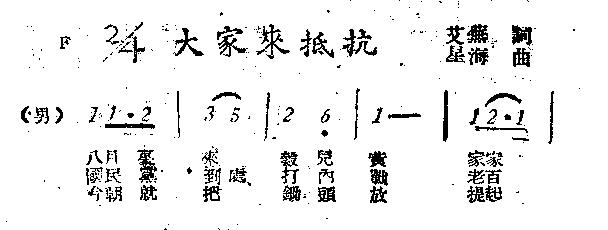 F 2/4 大家來抵抗 艾蕪 詞
星海 曲
(男) 1 1·2 | 3 5 | 2 6 | 1 — | 1 2·1 |
八月裏 來 穀兒 黃 家家
國民黨 到處、打內 戰 老百
今朝就 把 鋤頭 放 提起